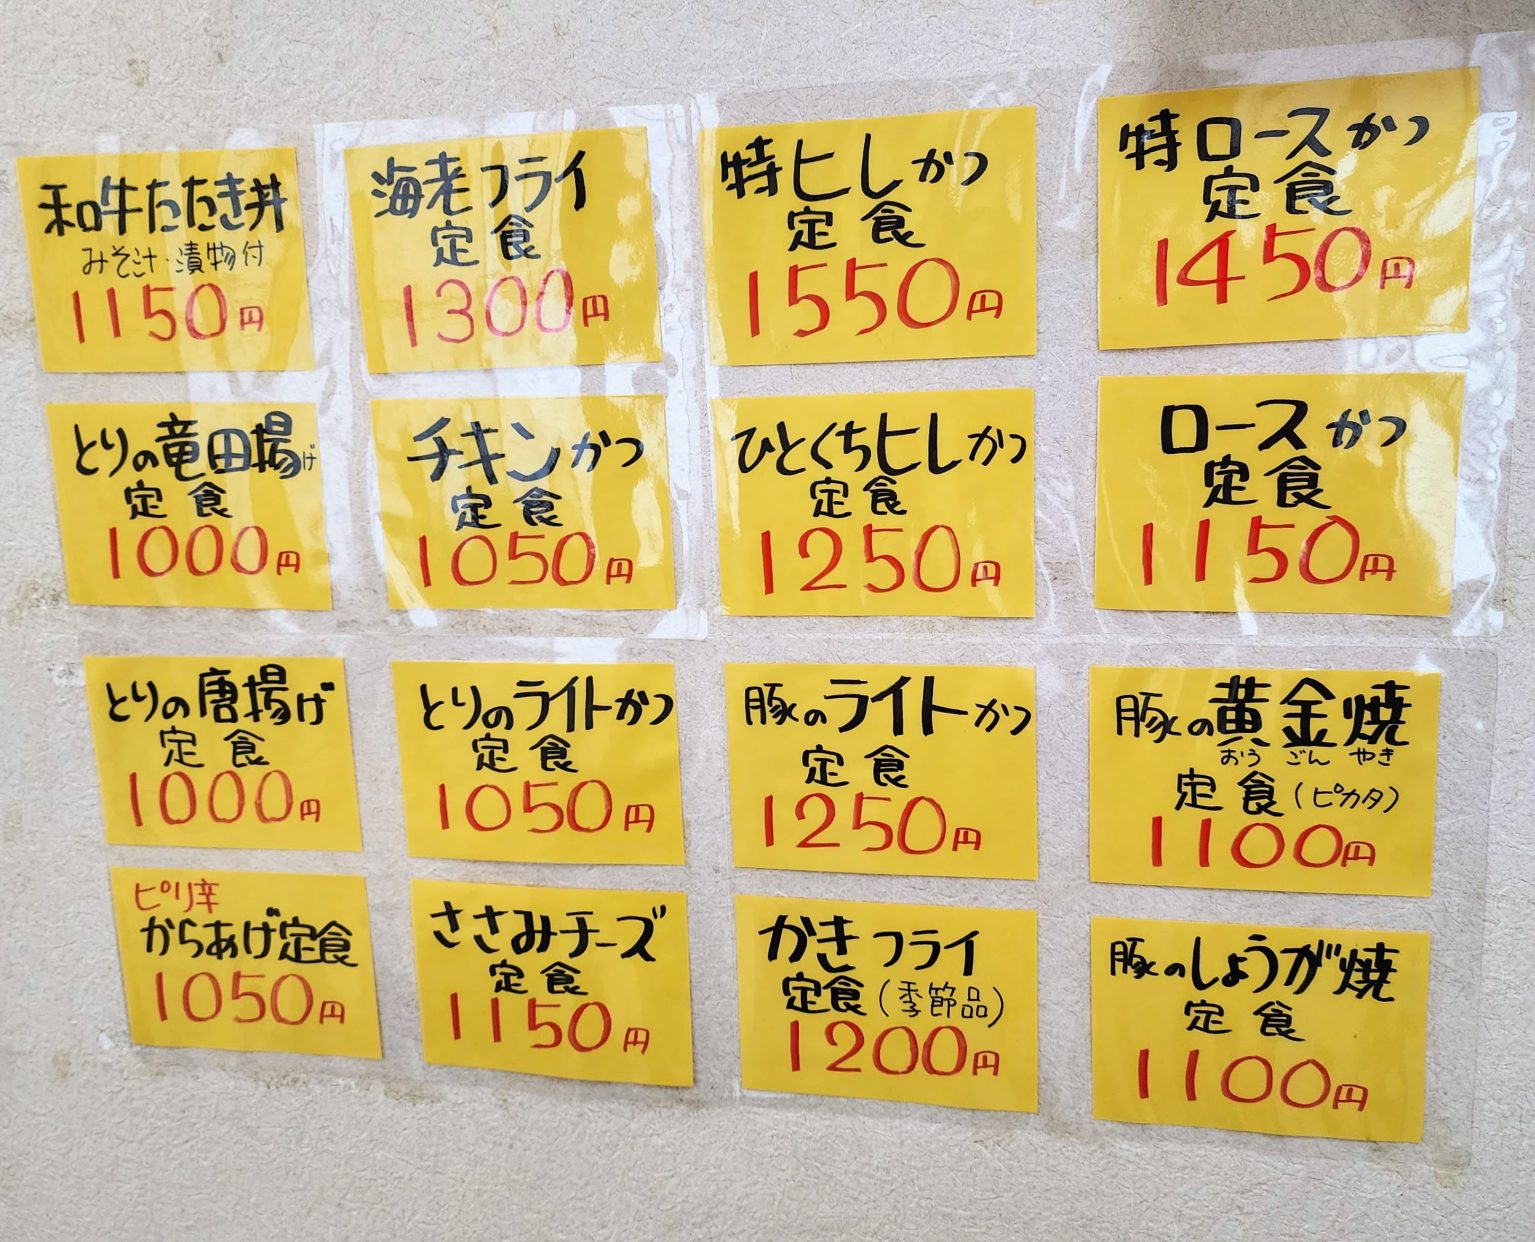 和牛たたき丼
みそ汁・漬物付
1150円
海老フライ
定食
1300円
特ヒレかつ
定食
1550円
特ロースかつ
定食
1450円
とりの竜田揚げ
定食
1000円
チキンかつ
定食
1050円
ひとくちヒレかつ
定食
1250円
ロースかつ
定食
1150円
とりの唐揚げ
定食
1000円
とりのライトかつ
定食
1050円
豚のライトかつ
定食
1250円
豚の黄金焼
おうごんやき
定食(ピカタ)
1100円
ピリ辛
からあげ定食
1050円
ささみチーズ
定食
1150円
かきフライ
定食(季節品)
1200円
豚のしょうが焼
定食
1100円